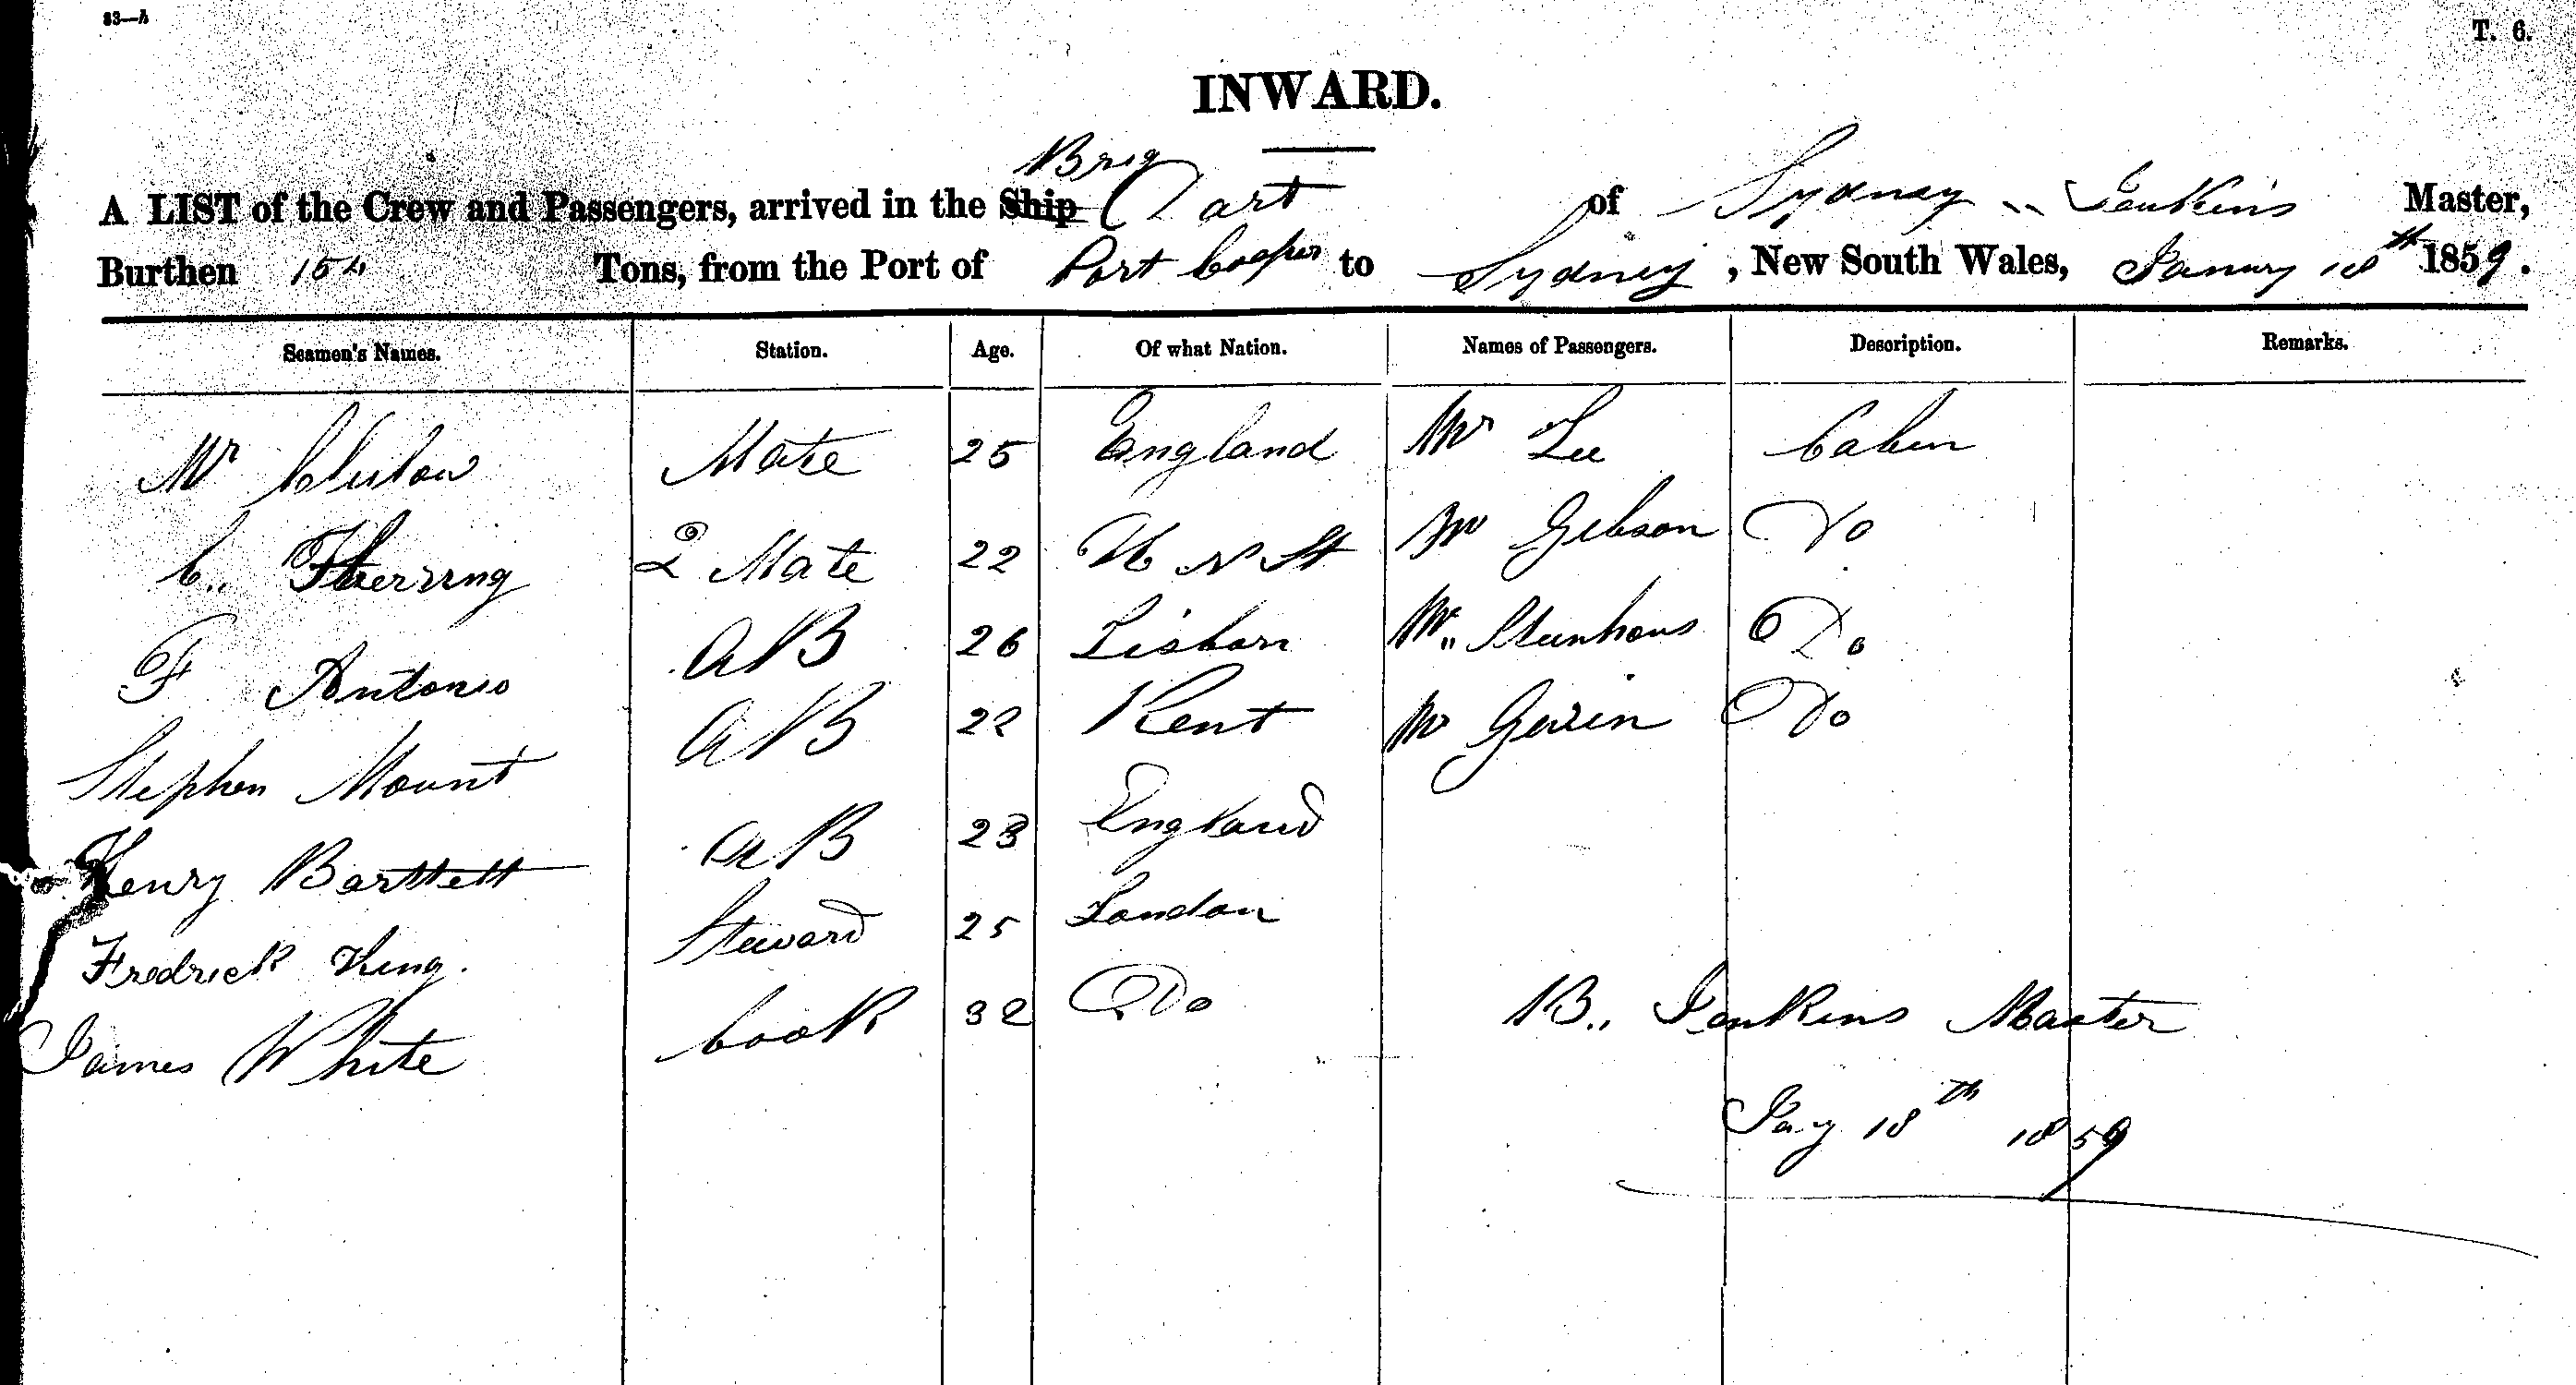 83—h
T. 6.
INWARD.
A LIST of the Crew and Passengers, arrived in the Ship Brig Dart of Sydney " Jenkins Master,
Burthen 154 Tons, from the Port of Port Cooper to Sydney, New South Wales, Janury 18th 1859.
Seamen's Names. Station. Age. Of what Nation. Names of Passengers. Description. Remarks.
Mr Clulow Mate 25 England Mr Lee Cabin
C. Herring 2 Mate 22 U N St Mr Gibson Do
F Antonio AB 26 Lisbon Mr Stenhous Do
Stephen Mount AB 22 Kent Mr Do
Henry Bartlett AB 23 England
Fredrick King. Steward 25 London
James White Cook 32 Do
B.. Jenkins Master
Jay 18th 1859